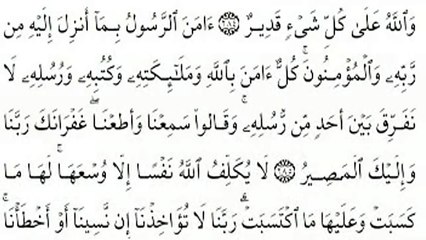 وَٱللَّهُ عَلَىٰ كُلِّ شَىْءٍ قَدِيرٌ ۝٢٨٤ ءَامَنَ ٱلرَّسُولُ بِمَآ أُنزِلَ إِلَيْهِ مِن
رَّبِّهِۦ وَٱلْمُؤْمِنُونَ ۚ كُلٌّ ءَامَنَ بِٱللَّهِ وَمَلَـٰٓئِكَتِهِۦ وَكُتُبِهِۦ وَرُسُلِهِۦ لَا
نُفَرِّقُ بَيْنَ أَحَدٍ مِّن رُّسُلِهِۦ ۚ وَقَالُوا۟ سَمِعْنَا وَأَطَعْنَا ۖ غُفْرَانَكَ رَبَّنَا
وَإِلَيْكَ ٱلْمَصِيرُ ۝٢٨٥ لَا يُكَلِّفُ ٱللَّهُ نَفْسًا إِلَّا وُسْعَهَا ۚ لَهَا مَا
كَسَبَتْ وَعَلَيْهَا مَا ٱكْتَسَبَتْ ۗ رَبَّنَا لَا تُؤَاخِذْنَآ إِن نَّسِينَآ أَوْ أَخْطَأْنَا ۚ